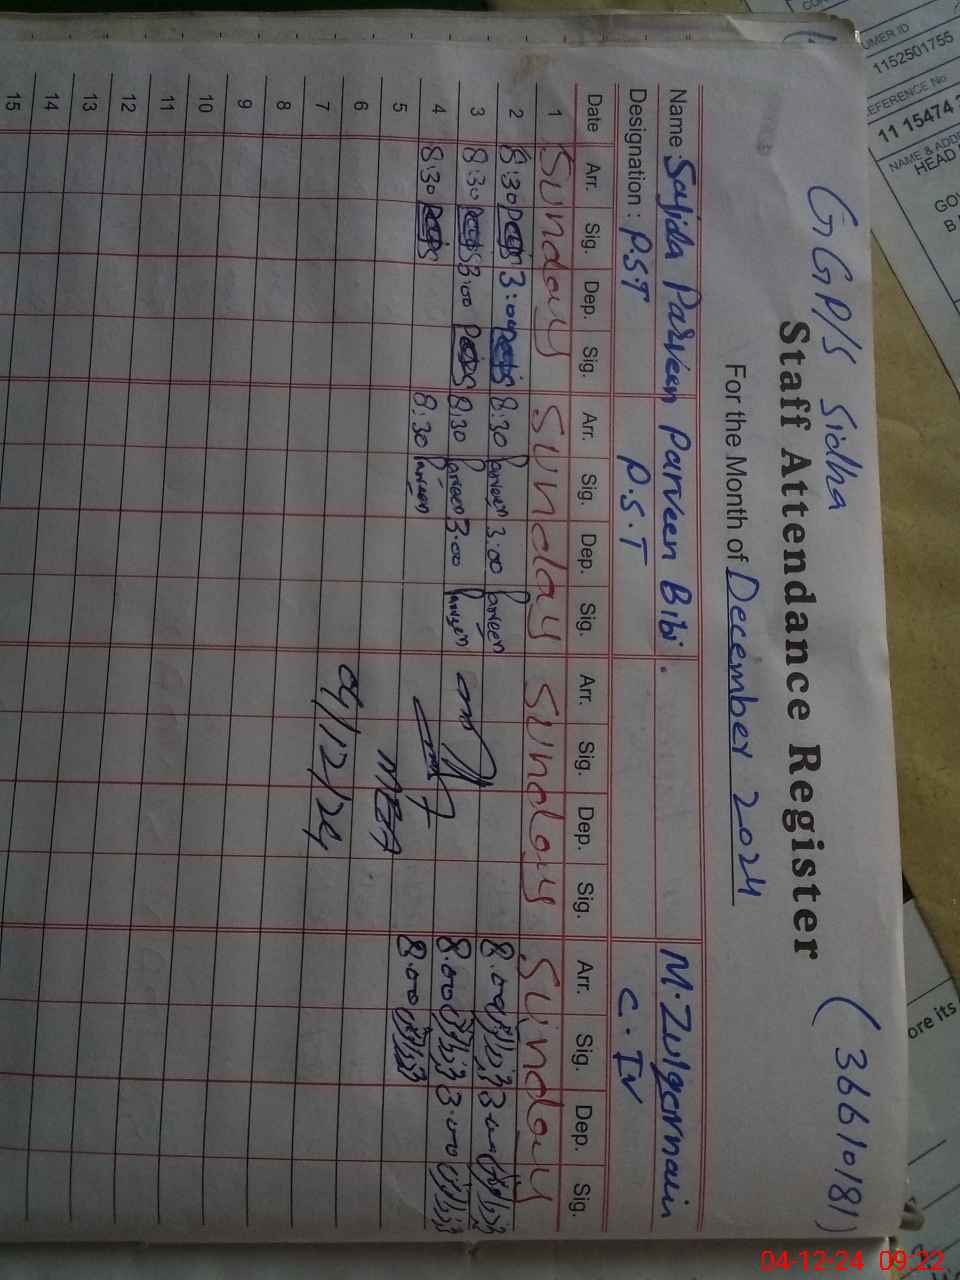 GGP/S Sidha (36610181)
Staff Attendance Register
For the Month of December 2024
Name: Sajida Parveen Parveen Bibi. M. Zulqernain
Designation: P.S.T P.S.T C.IV
Date Arr. Sig. Dep. Sig. Arr. Sig. Dep. Sig. Arr. Sig. Dep. Sig. Arr. Sig. Dep. Sig.
1 Sunday Sunday Sunday Sunday
2 8:30 3:00 8:30 Parveen 3:00 Parveen 8.00 3.00
3 8:30 3:00 8:30 Parveen 3:00 Parveen 8.00 3.00
4 8:30 8:30 Parveen 8.00
5 MEA
6
7 04/12/24
8
9
10
11
12
13
14
15
UMER ID
1152501755
EFERENCE No
11 15474
NAME & ADD
HEAD
GO
ore its
04-12-24 09:22